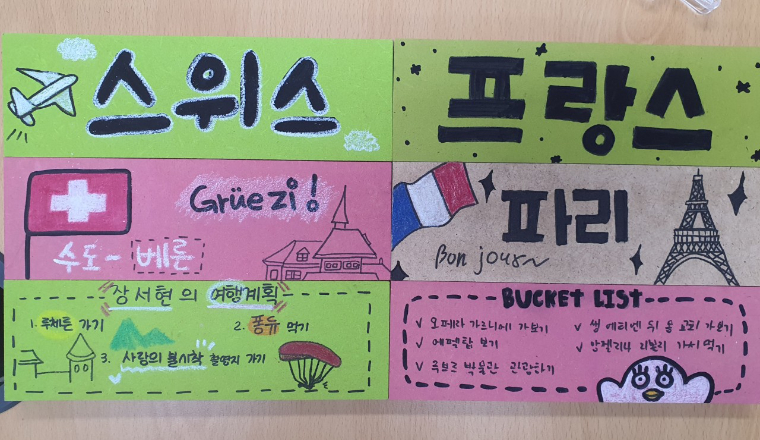 스위스
Grüezi!
수도~ 베른
장서현의 여행계획
1. 루체른 가기
2. 퐁듀 먹기
3. 사랑의 불시착 촬영지 가기
프랑스
파리
Bonjour~
BUCKET LIST
✓ 오페라 가르니에 가보기
✓ 에펠탑 보기
✓ 루브르 박물관 관광하기
✓ 생 에티엔 뒤 몽 교회 가보기
✓ 안젤리나 리볼리 가서 먹기